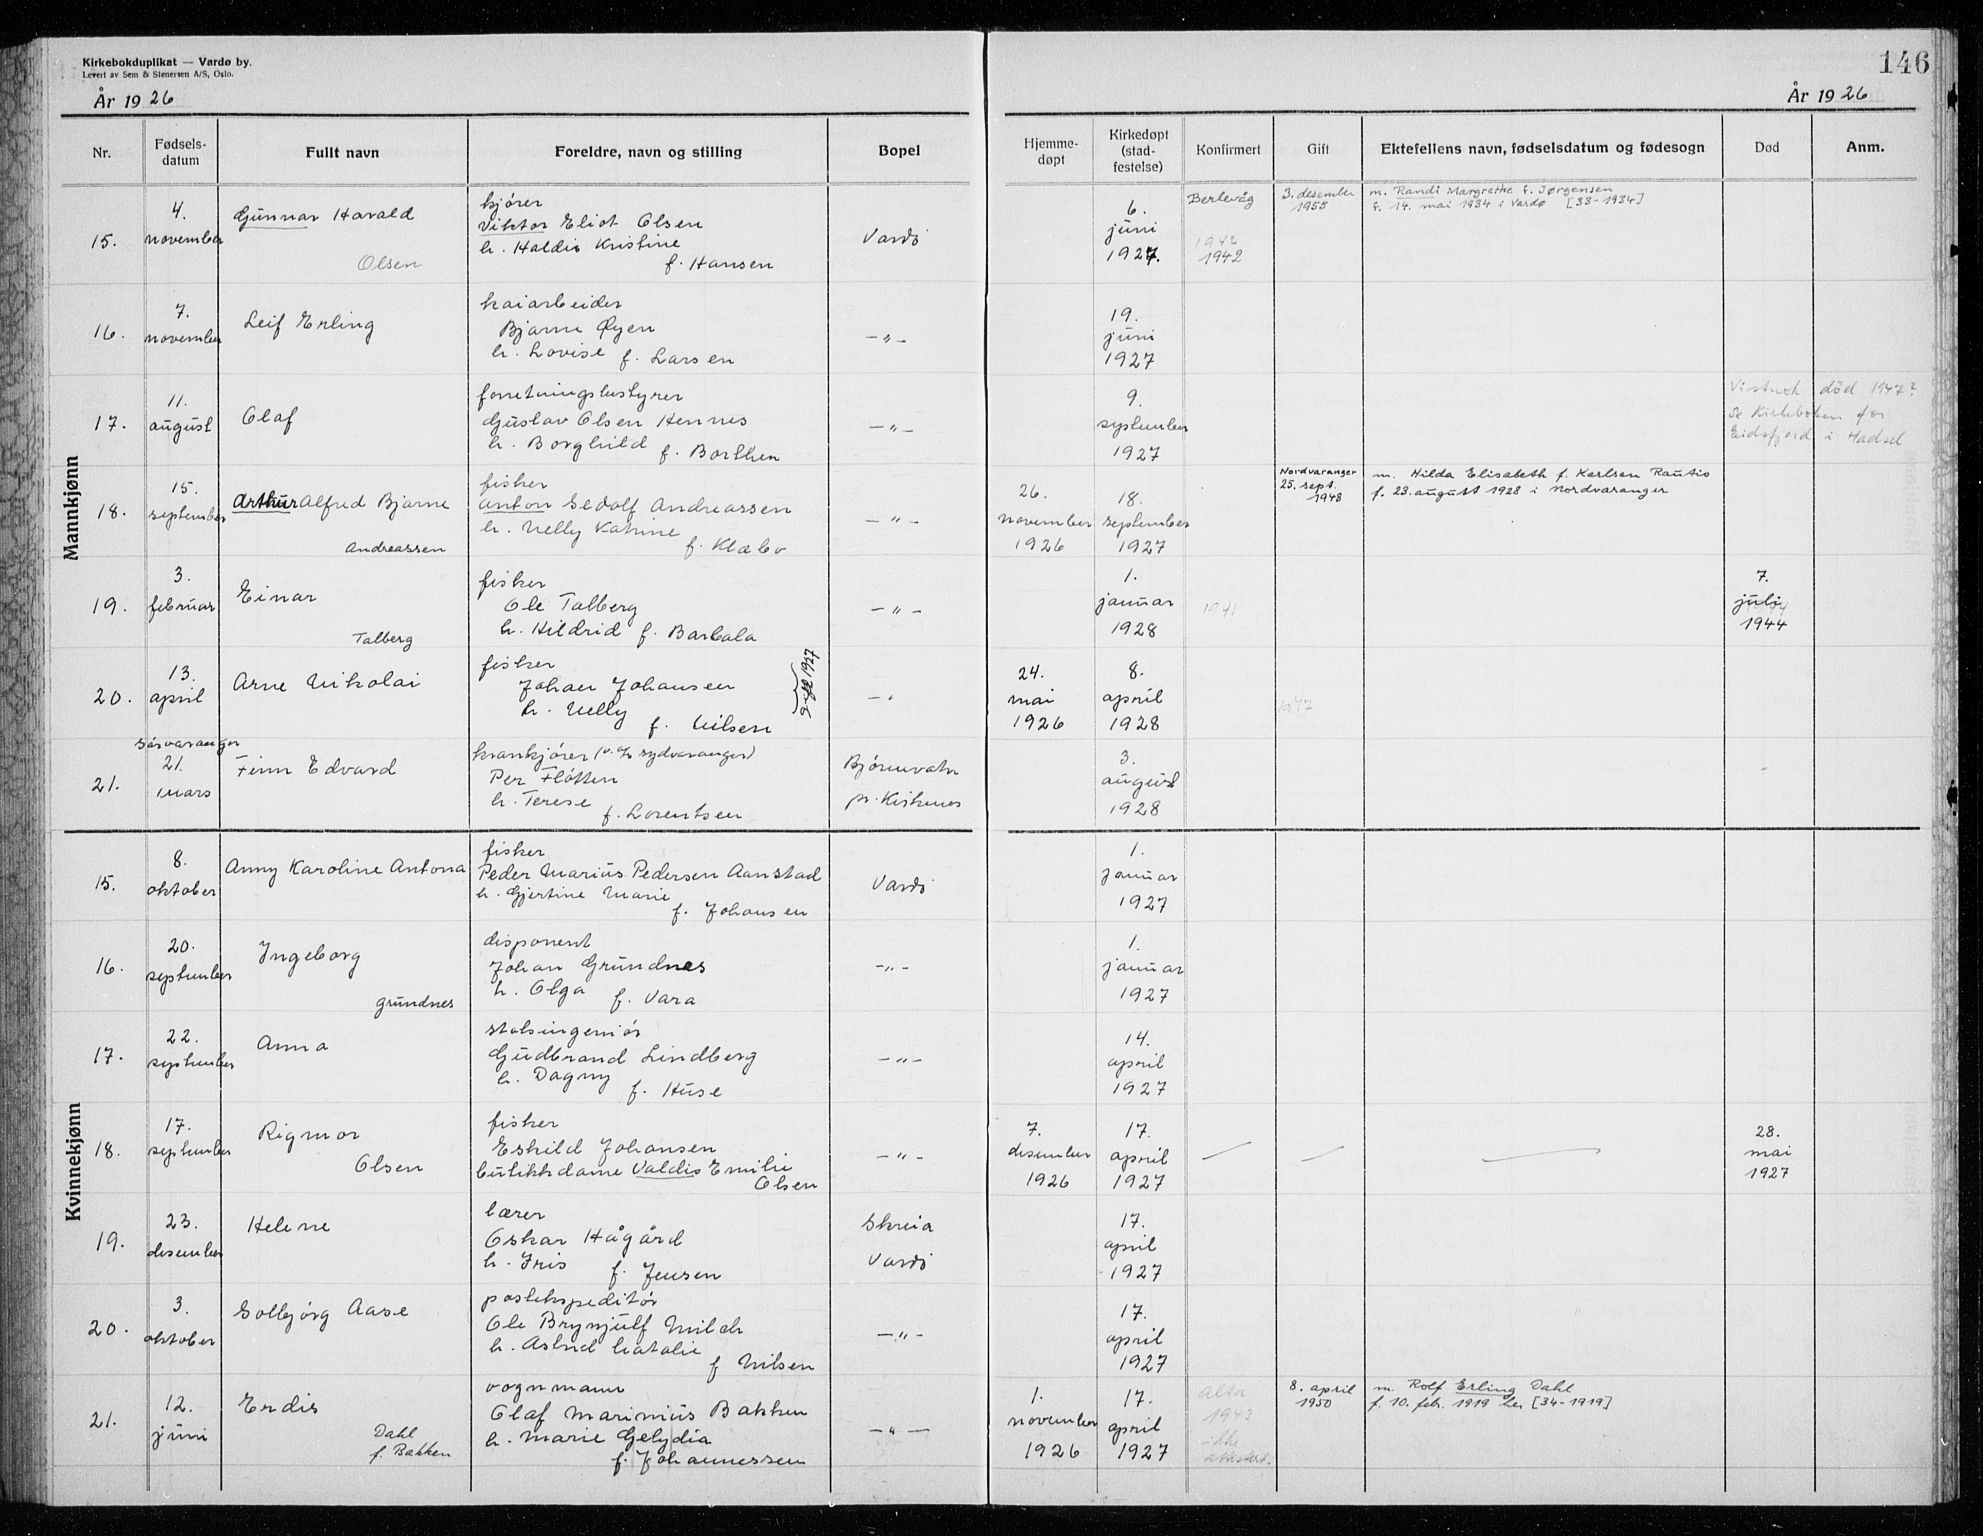 Kirkebokduplikat — Vardø by.
Levert av Sem & Stenersen A/S, Oslo.
År 1926
146
År 1926
Nr.
Fødsels-
datum
Fullt navn
Foreldre, navn og stilling
Bopel
Hjemme-
døpt
Kirkedøpt
(stad-
festelse)
Konfirmert
Gift
Ektefellens navn, fødselsdatum og fødesogn
Død
Anm.
Mannkjønn
15.
4.
november
Gunnar Harald
Olsen
kjører
Viktor Eliot Olsen
h. Haldis Kristine
f. Hansen
Vardö
6.
juni
1927.
Berlevåg
1942
1942
3. desember
1955
m. Randi Margrethe f. Jørgensen
f. 14. mai 1934 i Vardø [38-1934]
16.
7.
november
Leif Erling
kaiarbeider
Bjarne Øyen
h. Lovise f. Larsen
—"—
19.
juni
1927
17.
11.
august
Olaf
forretningsbestyrer
Gustav Olsen Hennes
h. Borghild f. Borthen
—"—
9.
september
1927
Vistnok död 1947?
Se Kirkeboken for
Eidsfjord i Hadsel
18.
15.
september
Arthur Alfred Bjarne
Andreassen
fisker
Anton Sedolf Andreassen
h. Nelly Katrine
f. Klæbo
—"—
26.
november
1926
18.
september
1927
Nordvaranger
25. sept.
1948
m. Hilda Elisabeth f. Karlsen Rautio
f. 23. august 1928 i Nordvaranger
19.
3.
februar
Einar
Talberg
fisker
Ole Talberg
h. Hildrid f. Barbala
—"—
1.
januar
1928
1941
7.
juli
1944
20.
13.
april
Arne Nikolai
fisker
Johan Johansen
h. Nelly
f. Nilsen
1927
—"
24.
mai
1926
8.
april
1928
1947
21.
Sörvaranger
21.
mars
Finn Edvard
krankjörer (v. a/s sydvaranger)
Per Flötten
h. Terese
f. Lorentsen
Björnevatn
pr. Kirkenes
3.
august
1928
Kvinnekjønn
15.
8.
oktober
Anny Karoline Antona
fisker
Peder Marius Pedersen Aanstad
h. Gjertine Marie
f. Johansen
Vardö
1.
januar
1927
16.
20.
september
Ingeborg
Grundnes
disponent
Johan Grundnes
h. Olga f. Vara
—"—
1.
januar
1927
17.
22.
september
Anna
statsingeniör
Gudbrand Lindberg
h. Dagny
f. Huse
—"—
14.
april
1927
18.
17.
september
Rigmor
Olsen
fisker
Eskild Johansen
butikkdame Valdis Emilie
Olsen
—"—
7.
desember
1926
17.
april
1927
—
—
—
28.
mai
1927
19.
23.
desember
Helene
lærer
Oskar Hågård
h. Iris f. Jensen
Skreia
Vardö
17.
april
1927
20.
3.
oktober
Solbjörg Aase
postekspeditör
Ole Brynjulf Milch
h. Astrid Natalie
f Nilsen
—"—
17.
april
1927
21.
12.
juni
Erdis
Dahl
f. Bakken
vognmann
Olaf Marinius Bakken
h. Marie Gelydia
f. Johannessen
—"—
1.
november
1926
17.
april
1927
Alta
1943
ikke
attestert.
8. april
1950
m. Rolf Erling Dahl
f. 10. febr. 1919 her [34-1919]